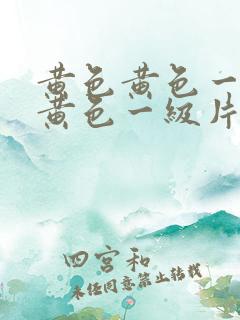 黄色黄色一
黄色一級片
四宮和
未经同意禁止转载